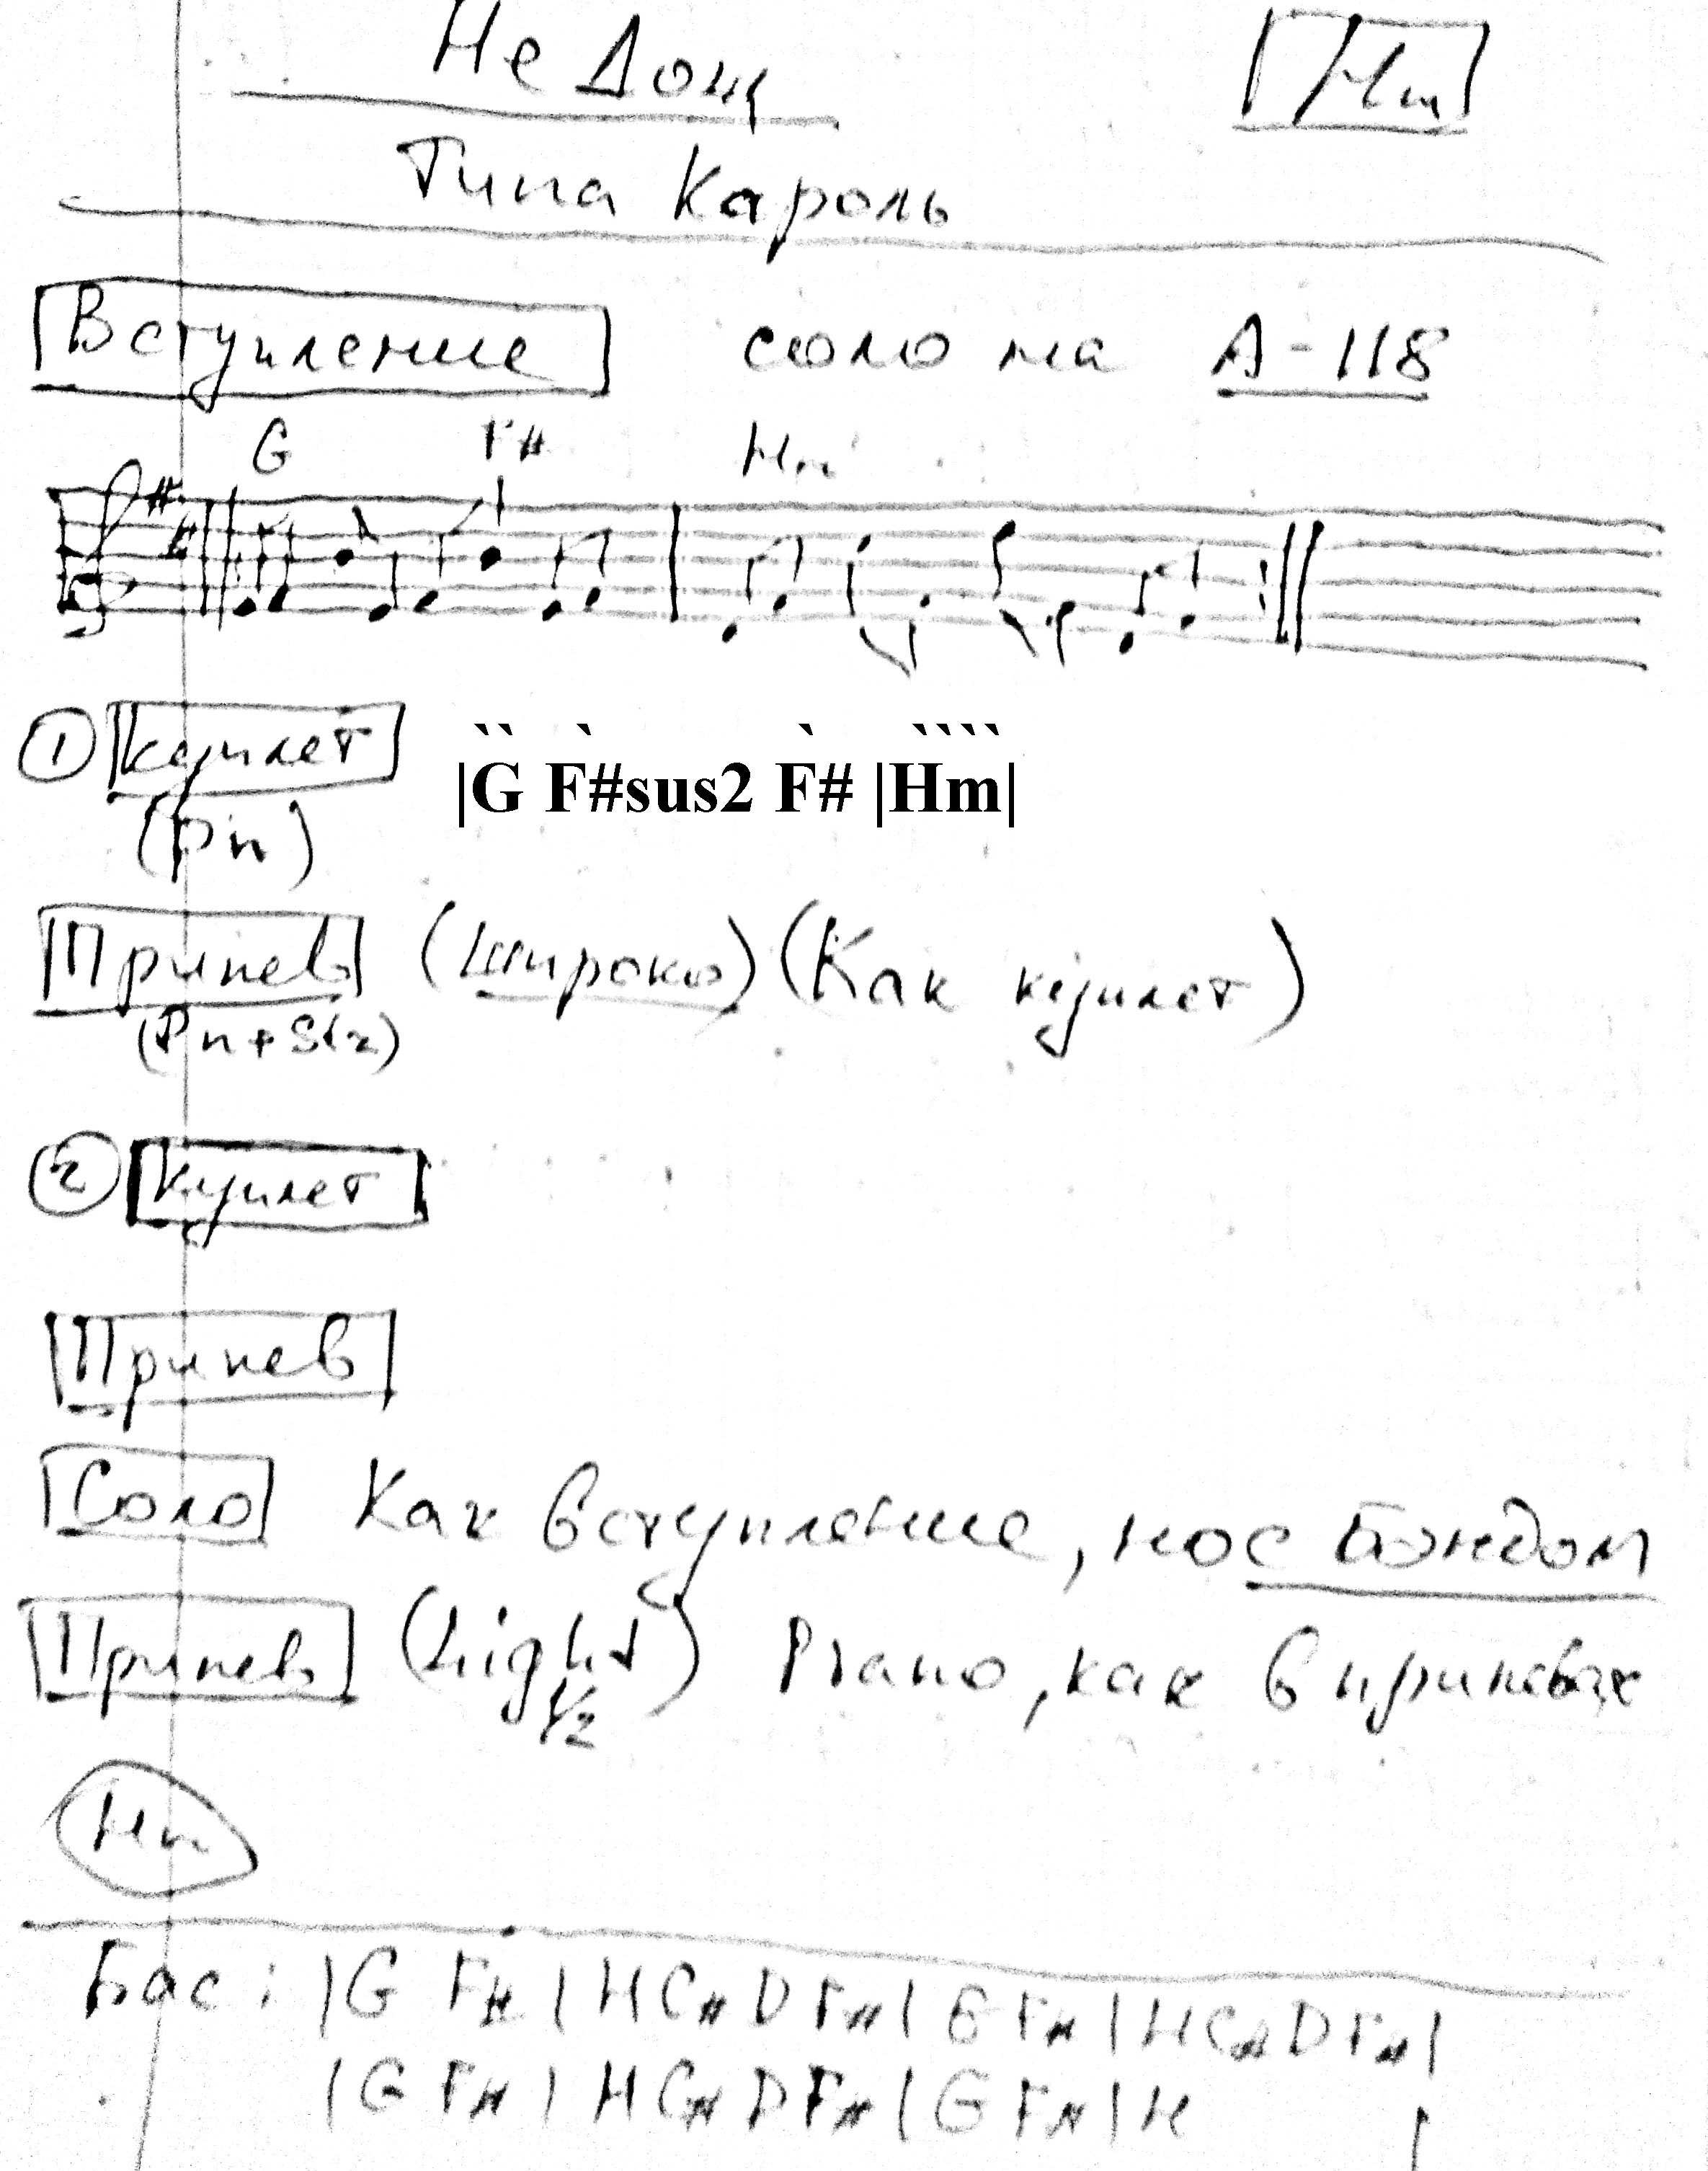 Не Дощ
Hm
Тіна Кароль
Вступление соло на A-118
G F# Hm
① куплет |G F#sus2 F# |Hm|
(Pn)
Припев (широко) (Как куплет)
(Pn + Str)
② куплет
Припев
Соло Как вступление, но с Бэндом
Припев (Light) Piano, как в припевах
1/2
Hm
Бас: |G F# | H C# D F# | G F# | H C# D F# |
|G F# | H C# D F# | G F# | H |